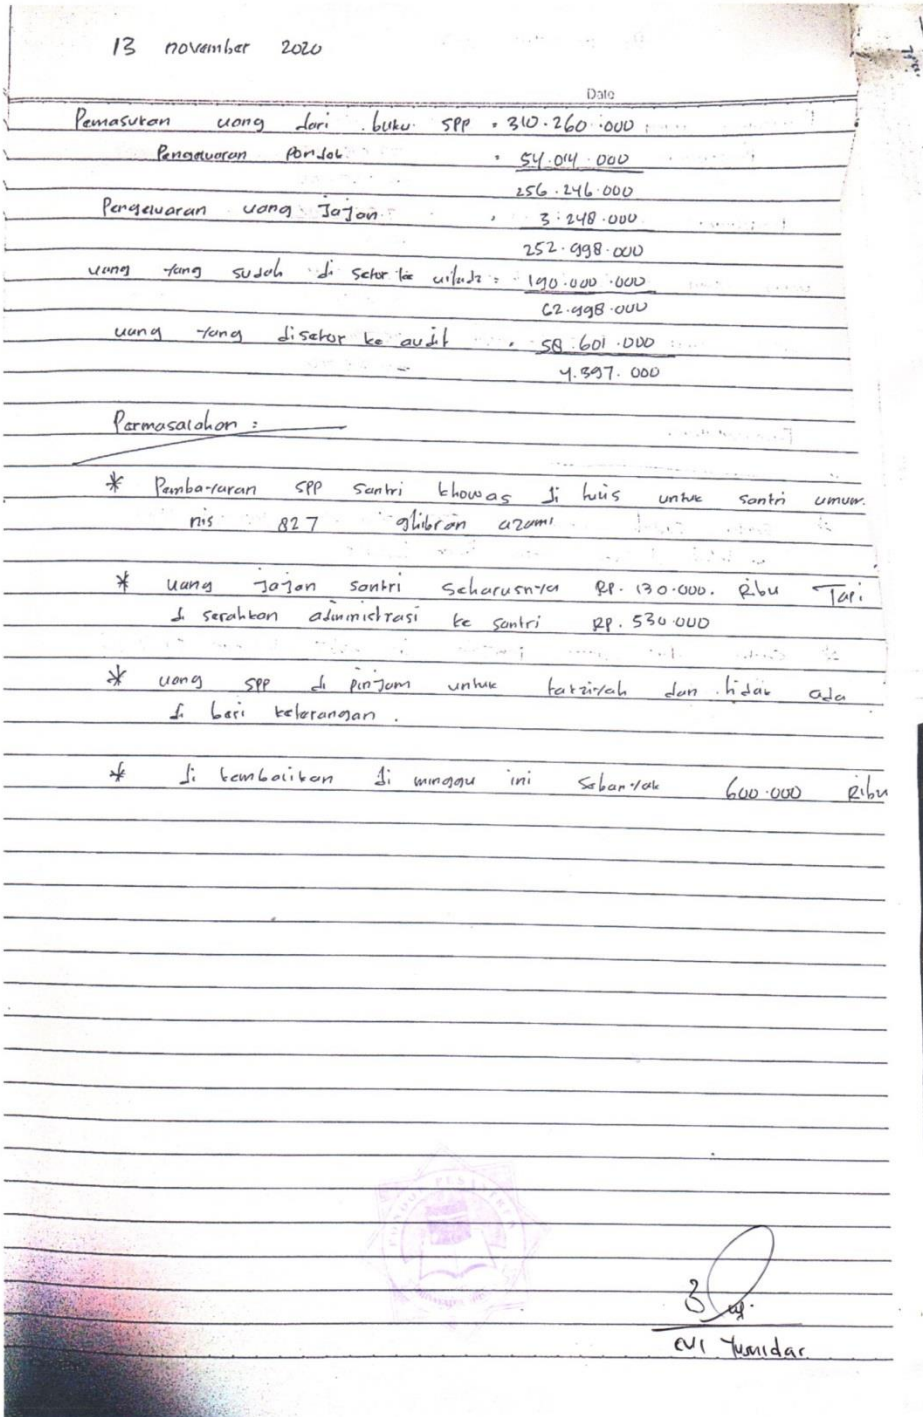 13 november 2020
Date
Pemasukan uang dari buku SPP : 310.260.000
Pengeluaran Pondok : 54.014.000
256.246.000
Pengeluaran uang Jajan : 3.248.000
252.998.000
uang yang sudah di setor ke : 190.000.000
62.998.000
uang yang disetor ke audit : 58.601.000
4.397.000
Permasalahan :
* Pembayaran SPP santri khowas di tulis untuk santri umum.
nis 827 ghibran azami
* uang Jajan santri seharusnya RP. 130.000. Ribu Tapi
di serahkan administrasi ke santri RP. 530.000
* uang SPP di pinjam untuk takziyah dan tidak ada
di beri keterangan.
* di kembalikan di minggu ini sebanyak 600.000 Ribu
EVI Yumidar